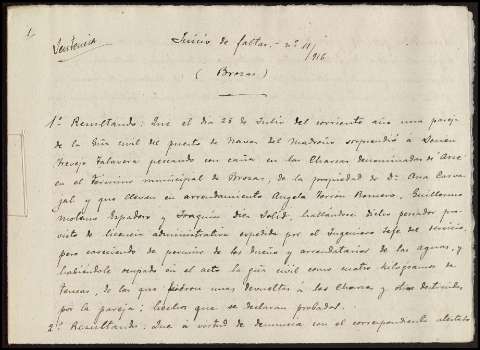 Sentencia
Juicio de faltas.- nº 11/916
(Brozas)
1º Resultando: Que el día 25 de Julio del corriente año una pareja
de la Gia civil del puesto de Navas del Madroño sorprendió á Demen
Trevejo Talavera pescando con caña en las Charcas denominadas de Arce
en el término municipal de Brozas, de la propiedad de Dª Ana Carva
jal y que llevan en arrendamiento Angela Terrón Romero, Guillermo
Moleno Espadero y Joaquín Diez Solid, hallándose dicho pescador pro
visto de licencia administrativa expedida por el Ingeniero Jefe del servicio,
pero careciendo de permiso de los dueño y arrendatarios de las aguas, y
habiéndole ocupado en el acto la gia civil como cuatro kilogramos de
tencas, de las que fueron unas devueltas á las charcas y otras destruidas
por la pareja; hechos que se declaran probados.
2º Resultando: Que á virtud de denuncia con el correspondiente atestado